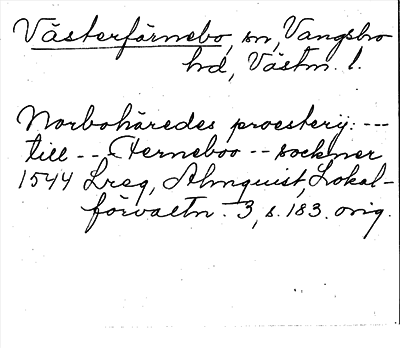 Västerfärnebo, sn, Vangsbro
hd, Västm. l.
Norbohäredes proesterij: ---
till -- Ferneboo -- sockner
1544 Lreg, Almquist, Lokal-
förvaltn. 3, s. 183. orig.